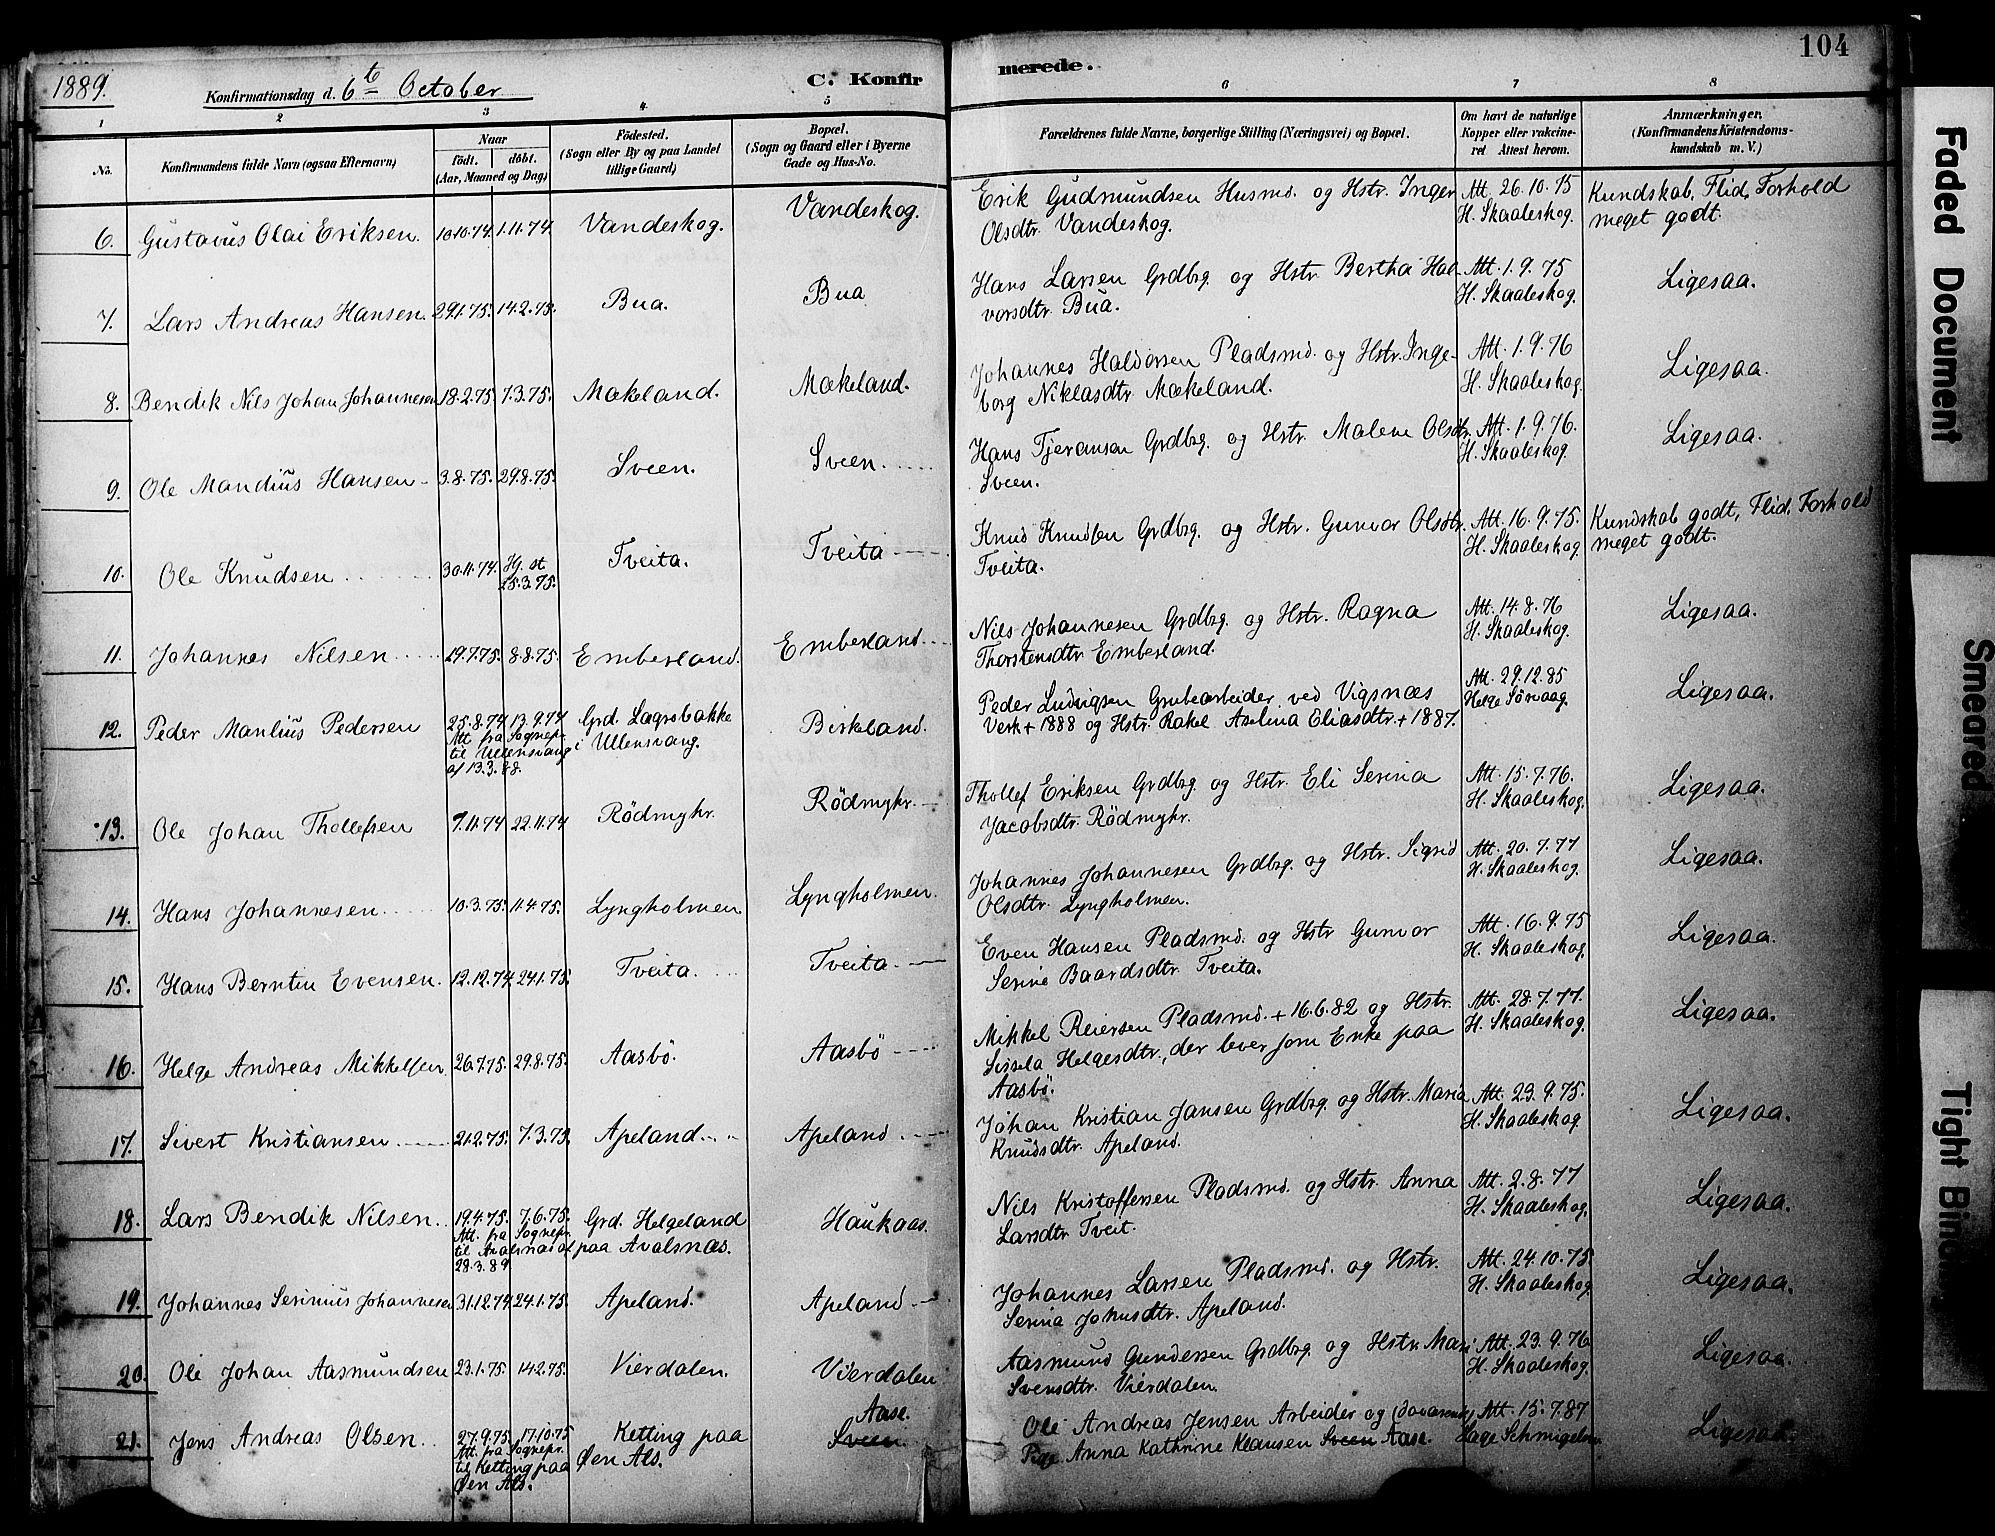 104
1889. Konfirmationsdag d. 6te October C. Konfirmerede.
1 2 3 4 5 6 7 8
No. Konfirmandens fulde Navn (ogsaa Efternavn) Naar födt. döbt. (Aar, Maaned og Dag) Födested. (Sogn eller By og paa Landet tillige Gaard) Bopæl. (Sogn og Gaard eller i Byerne Gade og Hus-No. Forældrenes fulde Navne, borgerlige Stilling (Næringsvei) og Bopæl. Om havt de naturlige Kopper eller vakcineret Attest herom. Anmærkninger. (Konfirmandens Kristendomskundskab m. V.)
6. Gustavus Olai Eriksen. 10.10.74. 1.11.74. Vandeskog. Vandeskog. Erik Gudmundsen Husmd. og Hstr. Inger Att. 26.10.75 Kundskab, Flid, Forhold
Olsdtr. Vandeskog. H. Skaaleskog. meget godt.
7. Lars Andreas Hansen. 29.1.75. 14.2.75. Bua. Bua Hans Larsen Grdbrg. og Hstr. Bertha Hal- Att. 1.9.75 Ligesaa.
vorsdtr. Bua. H. Skaaleskog.
8. Bendik Nils Johan Johannesen 18.2.75. 7.3.75. Mækeland. Mækeland. Johannes Haldorsen Pladsmd. og Hstr. Inge- Att. 1.9.76 Ligesaa.
borg Niklasdtr. Mækeland. H. Skaaleskog.
9. Ole Mandius Hansen 3.8.75. 29.8.75. Sveen. Sveen. Hans Tjeransen Grdbrg. og Hstr. Malene Olsdtr. Att. 1.9.76. Ligesaa.
Sveen. H. Skaaleskog.
10. Ole Knudsen 30.11.74. Hj. st. 25.3.75. Tveita. Tveita Knud Knudsen Grdbrg. og Hstr. Gunvor Olsdtr. Att. 16.9.75. Kundskab godt, Flid, Forhold
Tveita. H. Skaaleskog meget godt.
11. Johannes Nilsen 19.7.75. 8.8.75. Emberland. Emberland. Nils Johannesen Grdbrg. og Hstr. Ragna Att. 14.8.76 Ligesaa.
Thorstensdtr. Emberland. H. Skaaleskog.
12. Peder Manlius Pedersen 25.8.74 13.9.74 Grd. Lagrebakke Birkeland. Peder Ludvigsen Grubearbeider ved Vigsnæs Att. 29.12.85 Ligesaa.
Att. fra Sognepr. i Ullensvang. Verk + 1888 og Hstr. Rakel Aselina Eliasdtr. + 1887. Helge Sørvaag.
til Ullensvang
af 13.3.88.
13. Ole Johan Thollefsen 7.11.74 22.11.74 Rödmyhr. Rödmyhr. Thollef Eriksen Grdbrg. og Hstr. Eli Serina Att. 15.7.76. Ligesaa.
Jacobsdtr. Rödmyhr. H. Skaaleskog.
14. Hans Johannesen 10.3.75. 11.4.75. Lyngholmen Lyngholmen. Johannes Johannesen Grdbrg. og Hstr. Sigrid Att. 20.7.77 Ligesaa.
Olsdtr. Lyngholmen. H. Skaaleskog.
15. Hans Berntin Evensen. 12.12.74. 24.1.75. Tveita. Tveita. Even Hansen Pladsmd. og Hstr Gunvor Att. 16.9.75 Ligesaa.
Serine Baardsdtr. Tveita. H. Skaaleskog.
16. Helge Andreas Mikkelsen 26.7.75. 29.8.75. Aasbö. Aasbö Mikkel Reiersen Pladsmd. + 16.6.82 og Hstr. Att. 28.7.77. Ligesaa.
Sissela Helgesdtr., der lever som Enke paa H. Skaaleskog.
Aasbö.
17. Sivert Kristiansen 21.2.75. 7.3.75. Apeland. Apeland. Johan Kristian Jansen Grdbrg. og Hstr. Maria Att. 23.9.75. Ligesaa.
Knudsdtr. Apeland. H. Skaaleskog
18. Lars Bendik Nilsen. 19.4.75. 7.6.75. Grd. Helgeland Haukaas. Nils Kristoffersen Pladsmd. og Hstr. Anna Att. 2.8.77 Ligesaa.
Att. fra Sognepr. paa Avalsnæs. Larsdtr. Tveit. H. Skaaleskog.
til Avalsnæs af
28.3.89
19. Johannes Serinius Johannesen 31.12.74. 24.1.75. Apeland. Apeland Johannes Larsen Pladsmd. og Hstr. Att. 24.10.75 Ligesaa.
Serina Johnsdtr. Apeland. H. Skaaleskog.
20. Ole Johan Aasmundsen 23.1.75. 14.2.75. Vierdalen. Vierdalen Aasmund Gundersen Grdbrg. og Hstr. Mari Att. 23.9.76 Ligesaa.
Svensdtr. Vierdalen. H. Skaaleskog.
21. Jens Andreas Olsen. 27.9.75. 17.10.75 Ketting paa Aase. Ole Andreas Jensen Arbeider og (daværende) Att. 15.7.87 Ligesaa.
Att. fra Sognepr. Øen Als. Sveen. Pige Anna Kathrine Klausen Sveen Aase.
til Ketting paa
Øen Als.
Faded Document
Smeared
Tight Bind